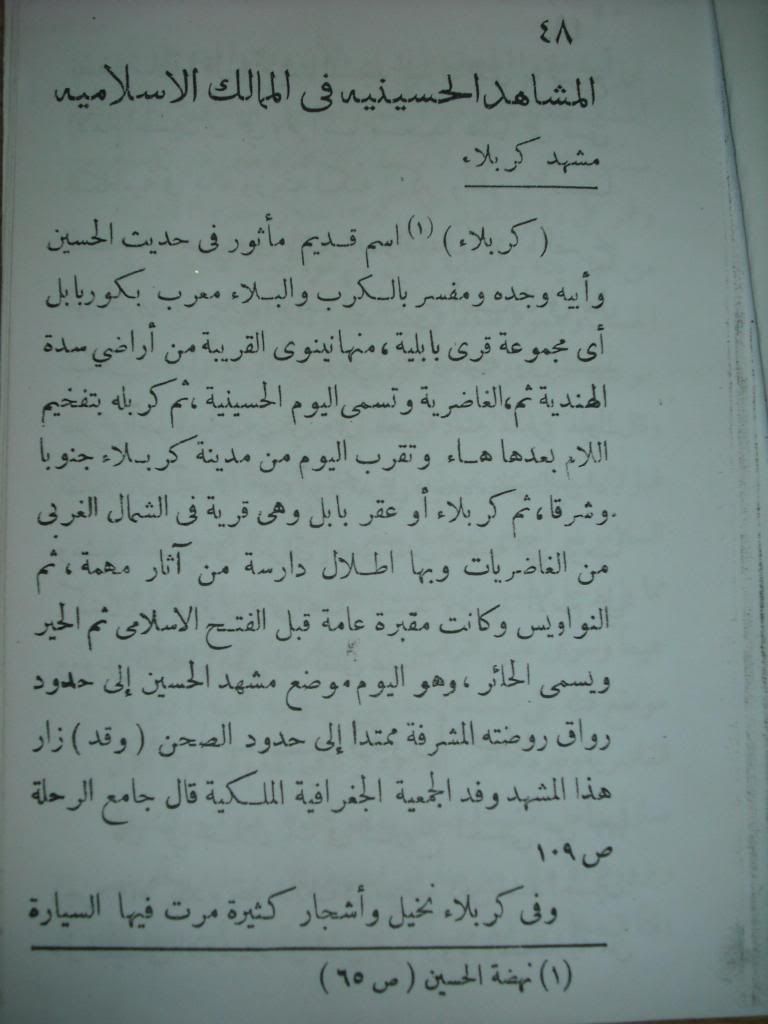 ٤٨
المشاهد الحسينيه فى الممالك الاسلاميه
مشهد كربلاء
( كربلاء ) (١) اسم قديم مأثور فى حديث الحسين
وأبيه وجده ومفسر بالكرب والبلاء معرب بكوربابل
أى مجموعة قرى بابلية ، منها نينوى القريبة من أراضي سدة
الهندية ثم، الغاضرية وتسمى اليوم الحسينية ، ثم كربله بتفخيم
اللام بعدها هاء وتقرب اليوم من مدينة كربلاء جنوبا
وشرقا، ثم كربلاء أو عقر بابل وهى قرية فى الشمال الغربى
من الغاضريات وبها اطلال دارسة من آثار مهمة ، ثم
النواويس وكانت مقبرة عامة قبل الفتح الاسلامى ثم الحير
ويسمى الحائر ، وهو اليوم موضع مشهد الحسين إلى حدود
رواق روضته المشرفة ممتدا إلى حدود الصحن ( وقد ) زار
هذا المشهد وفد الجمعية الجغرافية الملكية قال جامع الرحلة
ص ١٠٩
وفى كربلاء نخيل وأشجار كثيرة مرت فيها السيارة
(١) نهضة الحسين ( ص ٦٥ )